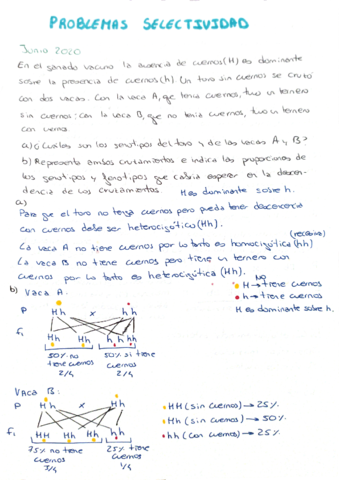 PROBLEMAS SELECTIVIDAD
Junio 2020
En el ganado vacuno la ausencia de cuernos (H) es dominante
sobre la presencia de cuernos (h) Un toro sin cuernos se cruzó
con dos vacas. Con la vaca A, que tenía cuernos, tuvo un ternero
sin cuernos; con la vaca B, que no tenía cuernos, tuvo un ternero
con cuernos
a) ¿Cuáles son los genotipos del toro y de las vacas A y B?
b) Representa ambos cruzamientos e indica las proporciones de
los genotipos y fenotipos que cabría esperar en la descen-
dencia de los cruzamientos. H es dominante sobre h.
a)
Para que el toro no tenga cuernos pero pueda tener descendencia
con cuernos debe ser heterocigótico (Hh). (recesiva)
La vaca A no tiene cuernos por lo tanto es homocigótica (hh)
La vaca B no tiene cuernos pero tiene un ternero con
cuernos por lo tanto es heterocigótica (Hh).
b) Vaca A:
NO
H → tiene cuernos
P Hh x hh
h → tiene cuernos
H es dominante sobre h.
F1
Hh Hh hh hh
50% no tiene cuernos 2/4
50% si tiene cuernos 2/4
Vaca B:
P Hh x Hh
HH (sin cuernos) → 25%
Hh (sin cuernos) → 50%
hh (con cuernos) → 25%
F1 HH Hh Hh hh
75% no tiene cuernos 3/4
25% tiene cuernos 1/4